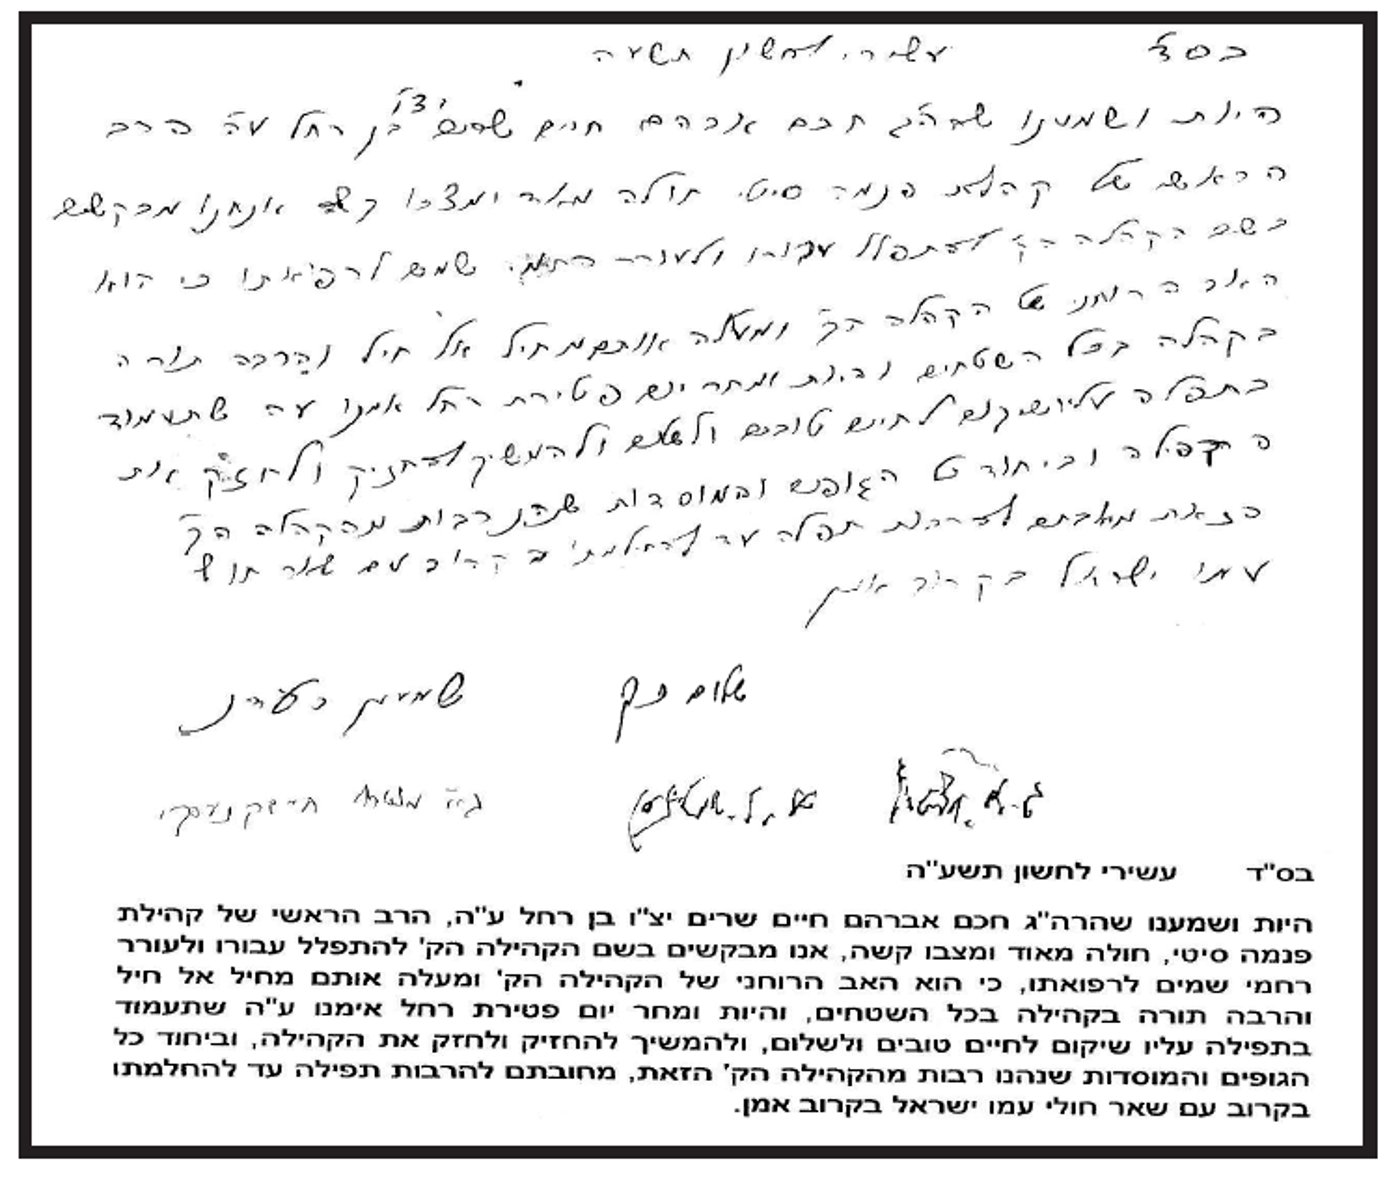 בסד עשירי לחשון תשעה
היות ושמענו שהרהג חכם אברהם חיים שרים יצו בן רחל עה הרב
הראשי של קהילת פנמה סיטי חולה מאד ומצבו קשה אנחנו מבקשים
בשם הקהלה הק להתפלל עבורו ולעורר שמים לרפואתו כי הוא
האב הרוחני של הקהלה הק ומעלה אותם מחיל אל חיל והרבה תורה
בקהלה בכל השטחים והיות ומחר יום פטירת רחל אמנו עה שתעמוד
בתפלה לחיים טובים ולשלום ולהמשיך להחזיק ולחזק את
וביחוד הגופים והמוסדות שנהנו רבות מהקהלה הק
הזאת להרבות תפלה עד בקרוב עם שאר
עמו ישראל בקרוב אמן
שלום כהן שמעון בעדני
בס"ד עשירי לחשון תשע"ה
היות ושמענו שהרה"ג חכם אברהם חיים שרים יצ"ו בן רחל ע"ה, הרב הראשי של קהילת
פנמה סיטי, חולה מאוד ומצבו קשה, אנו מבקשים בשם הקהילה הק' להתפלל עבורו ולעורר
רחמי שמים לרפואתו, כי הוא האב הרוחני של הקהילה הק' ומעלה אותם מחיל אל חיל
והרבה תורה בקהילה בכל השטחים, והיות ומחר יום פטירת רחל אימנו ע"ה שתעמוד
בתפילה עליו שיקום לחיים טובים ולשלום, ולהמשיך להחזיק ולחזק את הקהילה, וביחוד כל
הגופים והמוסדות שנהנו רבות מהקהילה הק' הזאת, מחובתם להרבות תפילה עד להחלמתו
בקרוב עם שאר חולי עמו ישראל בקרוב אמן.